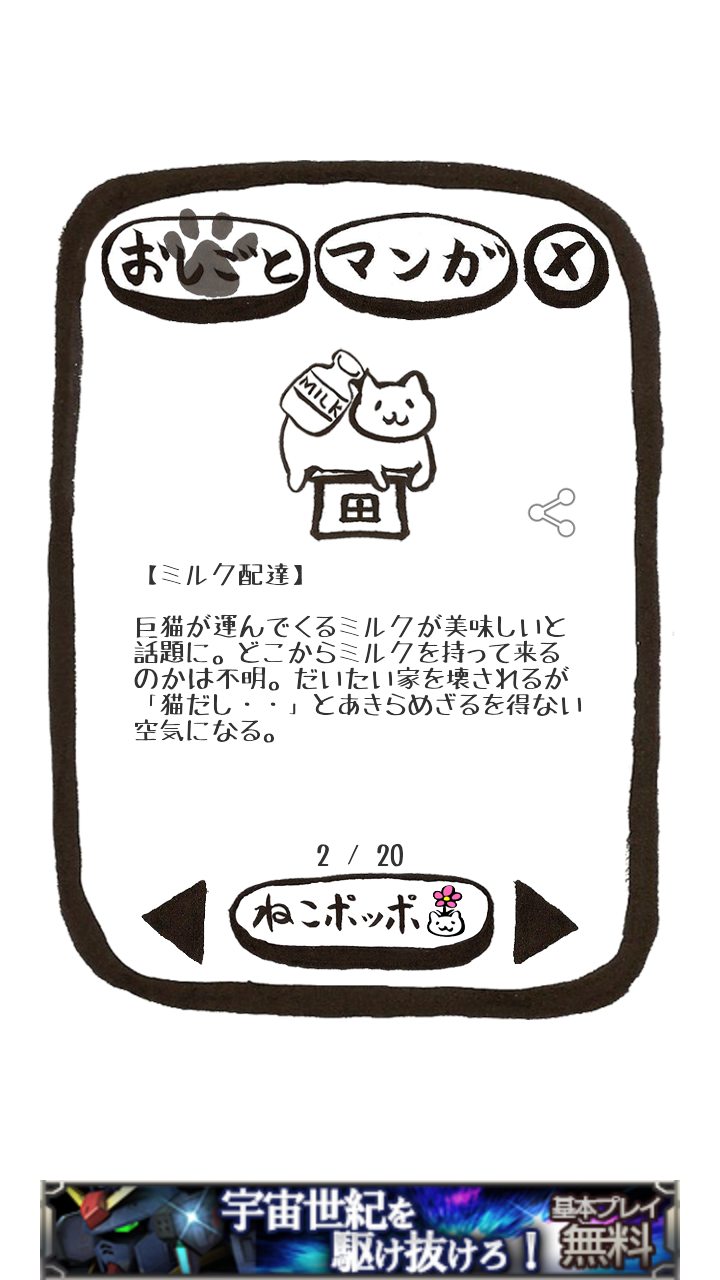 おしごと
マンガ
X
MILK
田
【ミルク配達】
巨猫が運んでくるミルクが美味しいと
話題に。どこからミルクを持って来る
のかは不明。だいたい家を壊されるが
「猫だし・・」とあきらめざるを得ない
空気になる。
2 / 20
ねこポッポ
宇宙世紀を
駆け抜けろ!
基本プレイ
無料